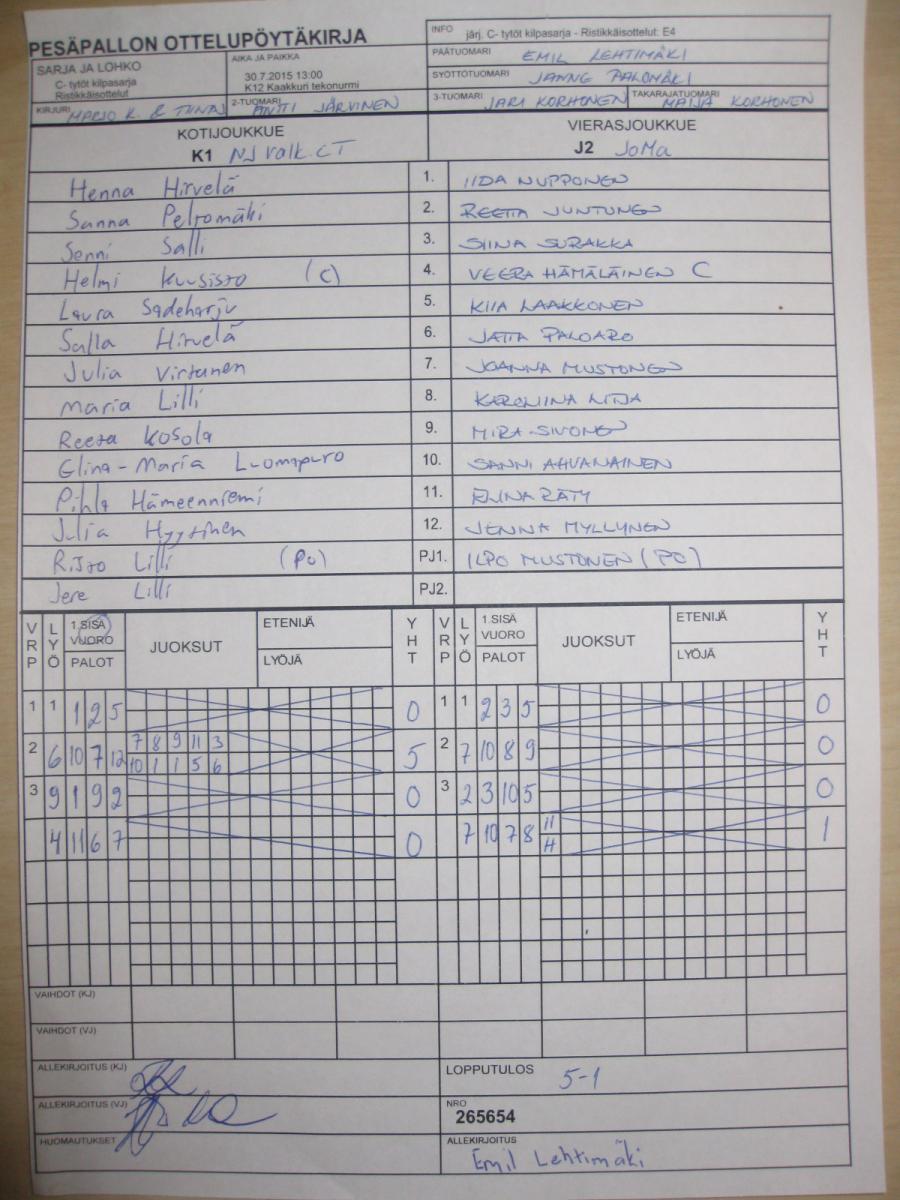 PESÄPALLON OTTELUPÖYTÄKIRJA
INFO järj. C- tytöt kilpasarja - Ristikkäisottelut: E4
PÄÄTUOMARI EMIL LEHTIMÄKI
SARJA JA LOHKO
C- tytöt kilpasarja
Ristikkäisottelut
AIKA JA PAIKKA
30.7.2015 13:00
K12 Kaakkuri tekonurmi
SYÖTTÖTUOMARI JANNE PALOMÄKI
KIRJURI MARJO K. & TIINA
2-TUOMARI ANTTI JÄRVINEN
3-TUOMARI JARI KORHONEN
TAKARAJATUOMARI MAIJA KORHONEN
KOTIJOUKKUE
K1 NJ Valk. CT
VIERASJOUKKUE
J2 JoMa
Henna Hirvelä 1. IIDA NUPPONEN
Sanna Peltomäki 2. REETTA JUNTUNEN
Senni Salli 3. SIINA SURAKKA
Helmi Kuusisto (C) 4. VEERA HÄMÄLÄINEN C
Laura Sadeharju 5. KIIA LAAKKONEN
Salla Hirvelä 6. JATTA PALOARO
Julia Virtanen 7. JOANNA MUSTONEN
Maria Lilli 8. KAROLIINA
Reeta Kosola 9. MIRA SIVONEN
Elina-Maria Luomapuro 10. SANNI AHVANAINEN
Pihla Hämeenniemi 11. RÄTY
Julia Hyytinen 12. JENNA MYLLYNEN
Risto Lilli (PO) PJ1. ILPO MUSTONEN (PO)
Jere Lilli PJ2.
VRP LYÖ 1.SISÄ VUORO PALOT JUOKSUT ETENIJÄ LYÖJÄ YHT VRP LYÖ 1.SISÄ VUORO PALOT JUOKSUT ETENIJÄ LYÖJÄ YHT
1 1 1 2 5 0 1 1 2 3 5 0
2 6 10 7 12 7 8 9 11 3 5 2 7 10 8 9 0
10 1 1 5 6
3 9 1 9 2 0 3 2 3 10 5 0
4 11 6 7 0 7 10 7 8 11 1
H
VAIHDOT (KJ)
VAIHDOT (VJ)
ALLEKIRJOITUS (KJ)
LOPPUTULOS 5-1
ALLEKIRJOITUS (VJ)
NRO
265654
HUOMAUTUKSET
ALLEKIRJOITUS
Emil Lehtimäki